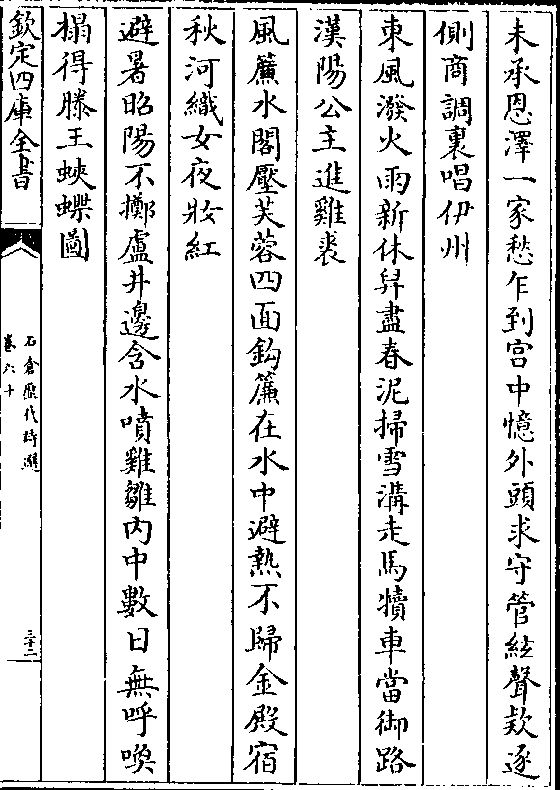 未承恩澤一家愁乍到宫中憶外頭求守管絃聲欵逐
側商調裏唱伊州
東風潑火雨新休舁盡春泥掃雪溝走馬犢車當御路
漢陽公主進雞裘
風簾水閣壓芙蓉四面鈎簾在水中避熱不歸金殿宿
秋河織女夜妝紅
避暑昭陽不擲盧井邊含水噴雞雛内中數日無呼喚
搨得滕王蛺蝶圖
欽定四庫全書
石倉歷代詩選
卷六十
三十二